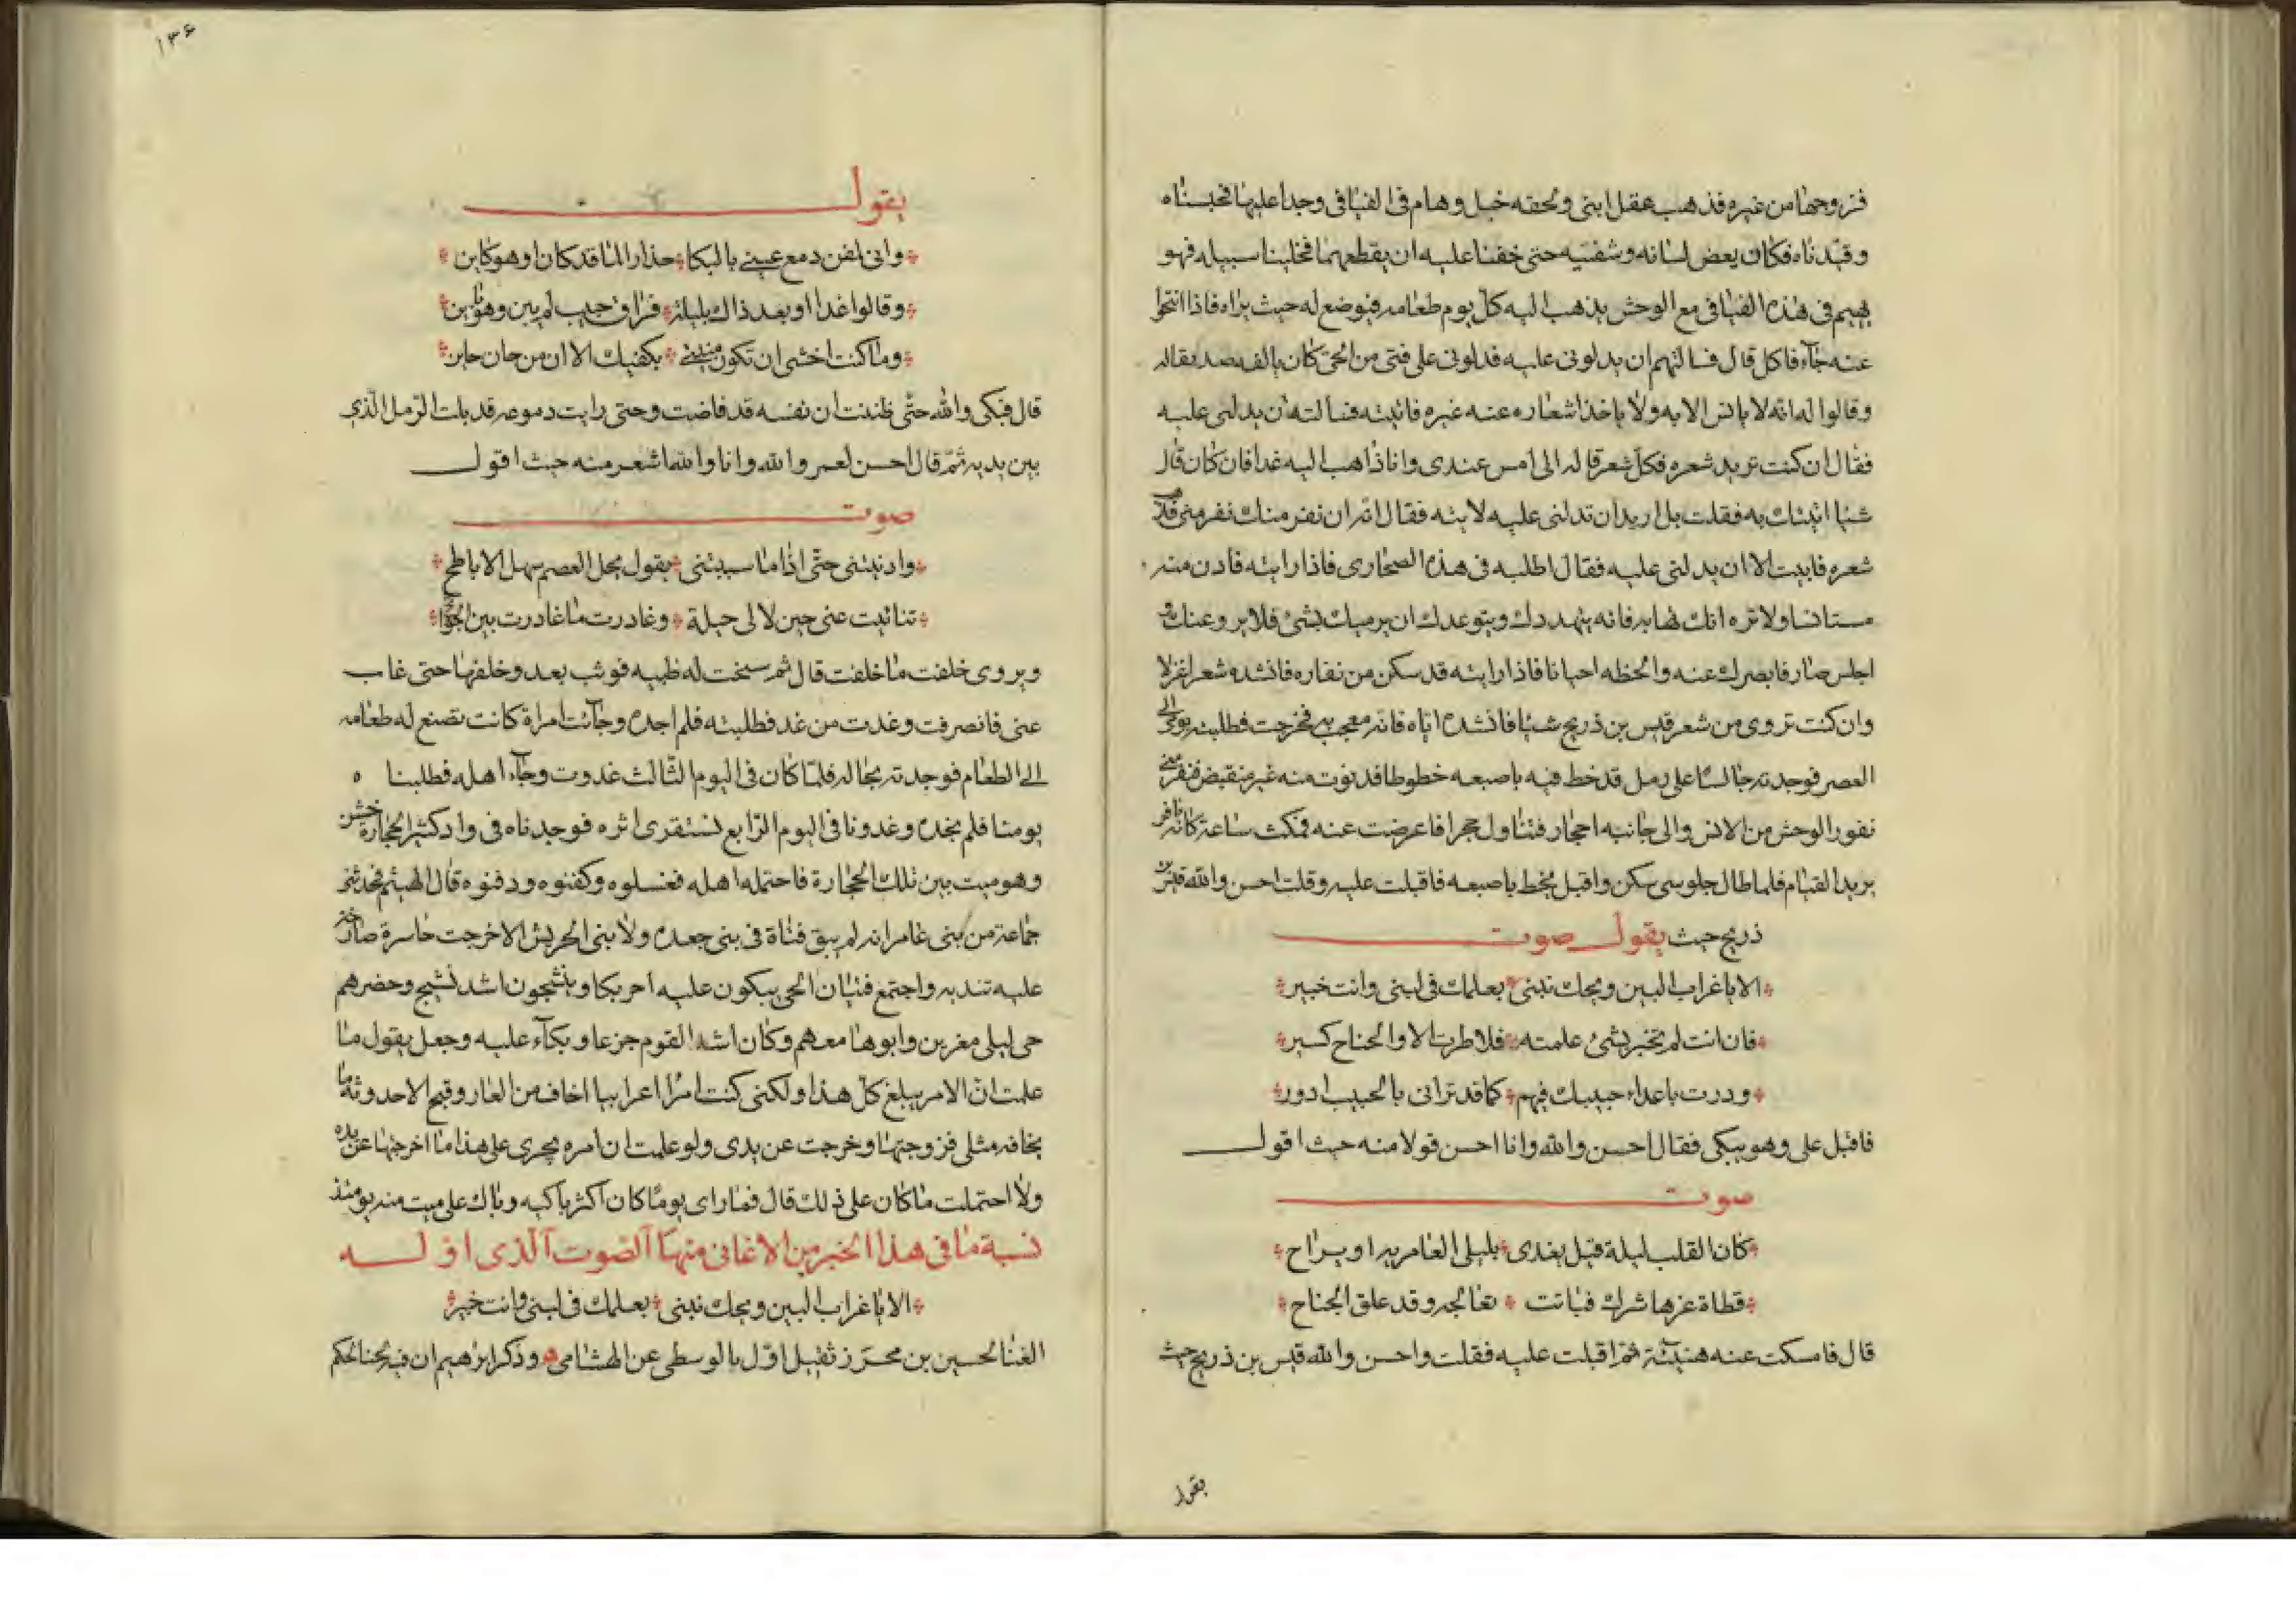 فزوجها من غيره فذهب عقل ابنى ولحقه خبل وهام فى الفيافى وجدا عليها فحبسناه
وقيدناه فكان يعض لسانه وشفتيه حتى خفنا عليه ان يقطعهما فخلينا سبيله فهو
يهيم فى هذه الفيافى مع الوحش يذهب اليه كل يوم طعامه فيوضع له حيث يراه فاذا انتحوا
عنه جاء فاكل قال فسالتهم ان يدلونى عليه فدلونى على فتى من الحى كان يالفه صديقا له
وقالوا له انه لا يانس الا به ولا ياخذ اشعاره عنه غيره فاتيته فسالته ان يدلنى عليه
فقال ان كنت تريد شعره فكل شعر قاله الى امس عندى وانا ذاهب اليه غدا فان كان قال
شيا اتيتك به فقلت بل اريد ان تدلنى عليه لاتيه فقال انه ان نفر منك نفر منى فيذهب
شعره فابيت الا ان يدلنى عليه فقال اطلبه فى هذه الصحارى فاذا رايته فادن منه
مستانسا ولا تره انك تهابه فانه يتهددك ويتوعدك ان يرميك بشئ فلا يروعنك و
اجلس صارفا بصرك عنه والحظه احيانا فاذا رايته قد سكن من نفاره فانشده شعرا غزلا
وان كنت تروى من شعر قيس بن ذريح شيا فانشده اياه فانه معجب به فخرجت فطلبته يومى الى
العصر فوجدته جالسا على رمل قد خط فيه باصبعه خطوطا فدنوت منه غير منقبض فنفر منى
نفور الوحش من الانس والى جانبه احجار فتناول حجرا فاعرضت عنه فمكث ساعة كانه نافر
يريد القيام فلما طال جلوسى سكن واقبل يخط باصبعه فاقبلت عليه وقلت احسن والله قيس بن
ذريح حيث يقول صوت
الا يا غراب البين ويحك نبنى بعلمك فى لبنى وانت خبير
فان انت لم تخبر بشئ علمته فلا طرت الا والجناح كسير
ودرت باعداء حبيبك فيهم كما قد ترانى بالحبيب ادور
فاقبل على وهو يبكى فقال احسن والله وانا احسن قولا منه حيث اقول
صوت
كان القلب ليلة قيل يغدى بليلى العامرية او يراح
قطاة عزها شرك فباتت تعالجه وقد علق الجناح
قال فامسكت عنه هنيئة ثم اقبلت عليه فقلت واحسن والله قيس بن ذريح حيث
يقول
١٣۶
يقول
وانى لمفن دمع عينى بالبكا حذارا لما قد كان او هو كاين
وقالوا غدا او بعد ذاك بليلة فراق حبيب لم يبن وهو باين
وما كنت اخشى ان تكون منيتى بكفيك الا ان من حان حاين
قال فبكى والله حتى ظننت ان نفسه قد فاضت وحتى رايت دموعه قد بلت الرمل الذى
بين يديه ثم قال احسن لعمر والله وانا والله اشعر منه حيث اقول
صوت
وادنيتنى حتى اذا ما سبيتنى بقول يحل العصم سهل الاباطح
تنائيت عنى حين لا لى حيلة وغادرت ما غادرت بين الجوانح
ويروى خلفت ما خلفت قال ثم سنحت له ظبيه فوثب يعدو خلفها حتى غاب
عنى فانصرفت وغدت من غد فطلبته فلم اجده وجاءت امراة كانت تصنع له طعامه
الى الطعام فوجدته بحاله فلما كان فى اليوم الثالث غدوت وجاء اهله فطلبناه
يومنا فلم نجده وغدونا فى اليوم الرابع نستقرى اثره فوجدناه فى واد كثير الحجارة خشن
وهو ميت بين تلك الحجارة فاحتمله اهله فغسلوه وكفنوه ودفنوه قال الهيثم فحدثنى
جماعة من بنى عامر انه لم يبق فتاة فى بنى جعده ولا بنى الحريش الا خرجت حاسرة صارخة
عليه تندبه واجتمع فتيان الحى يبكون عليه احر بكا وينشجون اشد نشيج وحضرهم
حى ليلى معزين وابوها معهم وكان اشد القوم جزعا وبكاء عليه وجعل يقول ما
علمت ان الامر يبلغ كل هذا ولكنى كنت امرا اعرابيا اخاف من العار وقبح الاحدوثة ما
يخافه مثلى فزوجتها وخرجت عن يدى ولو علمت ان امره يجرى على هذا ما اخرجتها عن يده
ولا احتملت ما كان على ذلك قال فما راى يوما كان اكثر باكيه وباك على ميت منه يومئذ
نسبة ما فى هذا الخبر من الاغانى منها الصوت الذى اوله
الا يا غراب البين ويحك نبنى بعلمك فى لبنى وانت خبير
الغنا لحسين بن محرز ثقيل اول بالوسطى عن الهشامى وذكر ابرهيم ان فيه لحنا لحكم